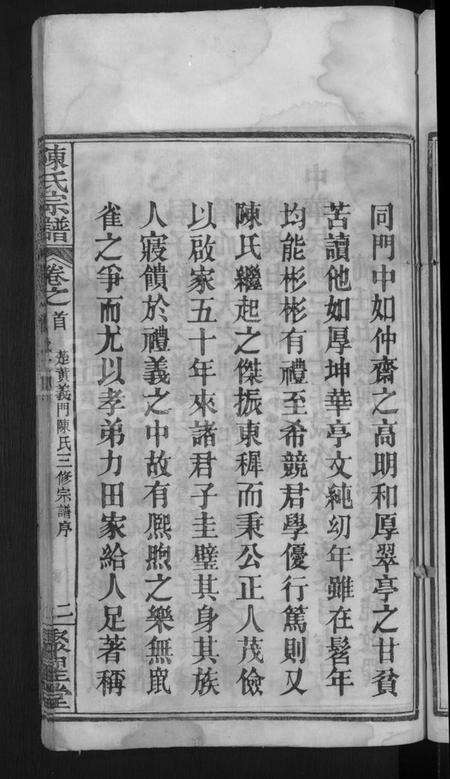 同門中如仲齋之高明和厚翠亭之甘貧
苦讀他如厚坤華亭文純幼年雖在髫年
均能彬彬有禮至希競君學優行篤則又
陳氏繼起之傑振東穉而秉公正人茂儉
以啟家五十年來諸君子圭璧其身其族
人寢饋於禮義之中故有熙煦之樂無鼠
雀之爭而尤以孝弟力田家給人足著稱
陳氏宗譜
卷之首
楚黃義門陳氏三修宗譜序
二
聚星堂